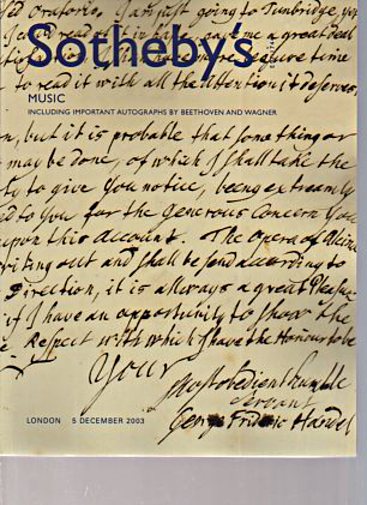 Sed Oratorio. I am just going to Tunbridge, yet
Sotheby's
EST. 1744
to read it with all the Attention it deserves
MUSIC
INCLUDING IMPORTANT AUTOGRAPHS BY BEETHOVEN AND WAGNER
n, but it is probable that some thing or
may be done, of which I shall take the
ty to give You notice, being extreamly
ed to You for the Generous Concern You
upon this Account. The Opera of Alcina
writing out and shall be send according to
Direction, it is allways a great Pleasure
if I have an opportunity to show the
e Respect with which I have the Honour to be
Your
most obedient humble
Servant
George Frideric Handel
LONDON 5 DECEMBER 2003